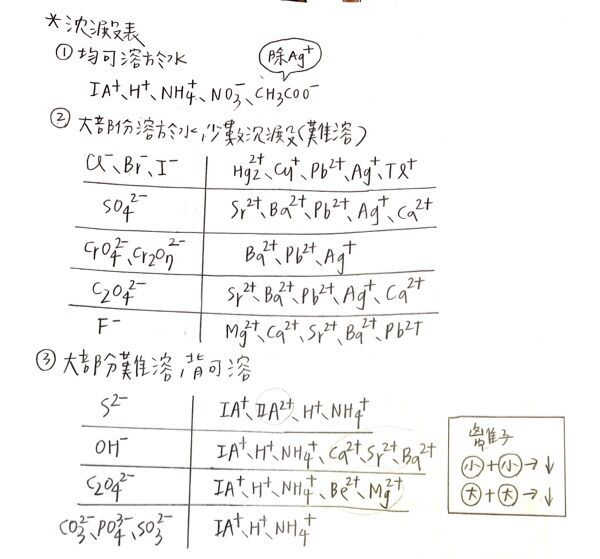 *沈澱表
①均可溶於水
除Ag⁺
IA⁺、H⁺、NH₄⁺、NO₃⁻、CH₃COO⁻
②大部份溶於水,少數沉澱(難溶)
Cl⁻、Br⁻、I⁻ Hg₂²⁺、Cu⁺、Pb²⁺、Ag⁺、Tl⁺
SO₄²⁻ Sr²⁺、Ba²⁺、Pb²⁺、Ag⁺、Ca²⁺
CrO₄²⁻、Cr₂O₇²⁻ Ba²⁺、Pb²⁺、Ag⁺
C₂O₄²⁻ Sr²⁺、Ba²⁺、Pb²⁺、Ag⁺、Ca²⁺
F⁻ Mg²⁺、Ca²⁺、Sr²⁺、Ba²⁺、Pb²⁺
③大部分難溶,背可溶
S²⁻ IA⁺、IIA²⁺、H⁺、NH₄⁺
OH⁻ IA⁺、H⁺、NH₄⁺、Ca²⁺、Sr²⁺、Ba²⁺
C₂O₄²⁻ IA⁺、H⁺、NH₄⁺、Be²⁺、Mg²⁺
CO₃²⁻、PO₄³⁻、SO₃²⁻ IA⁺、H⁺、NH₄⁺
離子
小+小→↓
大+大→↓